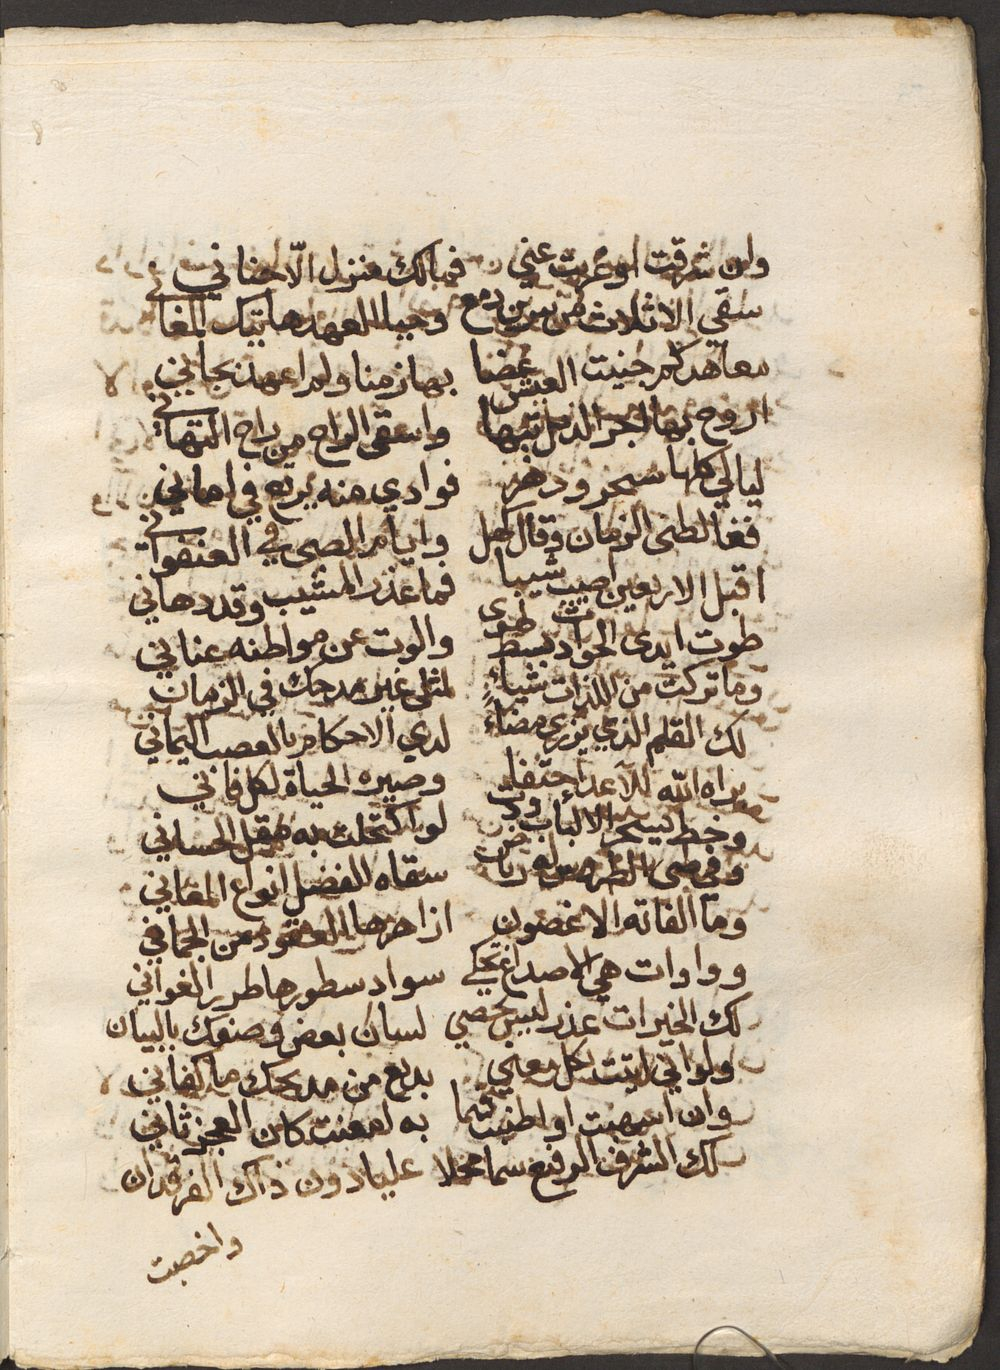 وان شرقت او غربت عني فمالك منزل الا جناني
سقي الاثلاث من دمع وحيا العهد هاتيك المغاني
معاهد كم جنيت العيش غضا بها زمنا ولم اعهد بجاني
اروح بها اجر الذيل تيها واسقى الراح من راح التهاني
ليالي كلها سحر وزهر فوادي منه يرتع في اماني
فغالطني الزمان وقال كهل وايام الصبى في العنفواني
اقبل الاربعين اصيب شيبا فما عذر المشيب وقد دهاني
طوت ايدى الحوادث بسط طوى والوت عن مواطنه عناني
وما تركت من اللذات شياء لمثلي غير مدحك في الزمان
لك القلم الذي يزري مضاء لدي الاحكام بالعصب اليماني
براه الله للاعداء حتفا وصيره الحياة لكل فاني
وخط يسحر الالباب لو اكتحلت به مقل الحساني
وفي الطرس سقاه الفضل انواع المعاني
وما الفاته الا غصون
وواوات هي الاصداغ تحكي سواد سطورها طرر الغواني
لك الخيرات عذر ليس يحصي لسان بعض صنعك بالبيان
ولو اني اتيت بكل معني بديع من مديحك ما كفاني
وان اسهبت او اطنبت فيما به امعنت كان العجز ثاني
لك الشرف الرفيع سما محلا عليا دون ذاك الفرقدان
واخصبت